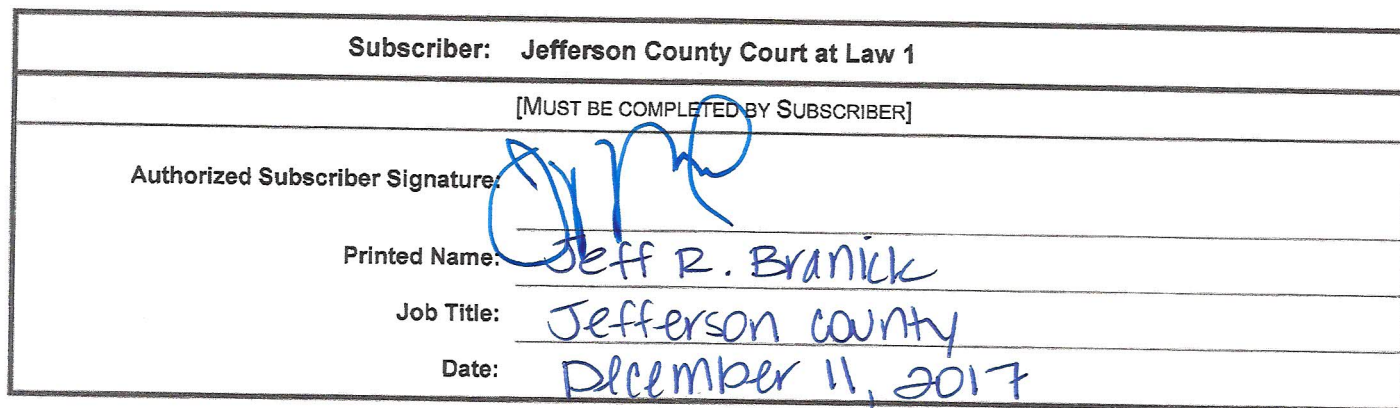 Subscriber: Jefferson County Court at Law 1
[MUST BE COMPLETED BY SUBSCRIBER]
Authorized Subscriber Signature:
Printed Name: Jeff R. Branick
Job Title: Jefferson County
Date: December 11, 2017